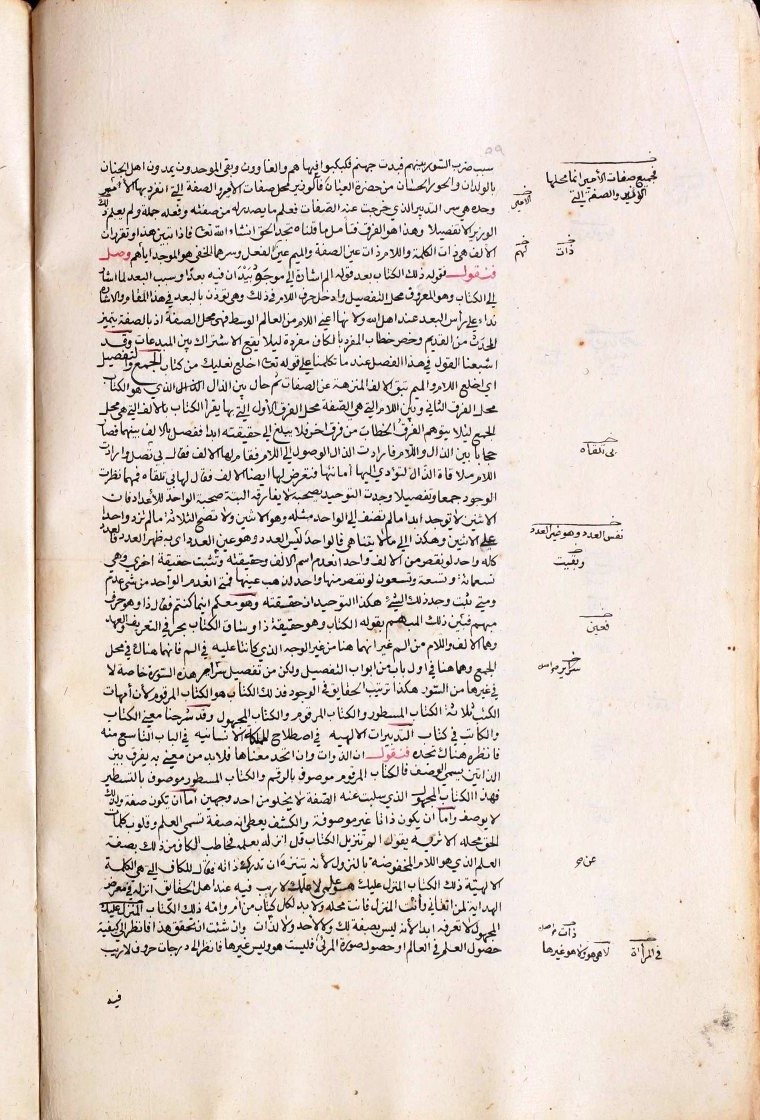 سبب ضرب السور بينهم فبدت جهنم فكبكبوا فيها هم والغاوون وبقى الموحدون يمدون اهل الجنان
بالولدان والحور الحسان من حضرة العيان فالوزير محل صفات الأمير والصفة التي انفرد بها الأمير
وحده هي سر التدبير الذي خرجت عنه الصفات فعلم ما يصدر له من صفته وفعله جملة ولم يعلم ذلك
الوزير الا تفصيلا وهذا هو الفرق فتأمل ما قلناه تجد الحق انشاء الله تعالى فاذا تبين هذا وتقرر ان
الالف هي ذات الكلمة واللام ذات عين الصفة والميم عين الفعل وسرهم الخفى هو الموجد اياهم وصل
فنقول فقوله ذلك الكتاب بعد قوله الم اشارة الى موجود بيد ان فيه بعدا وسبب البعد لما اشار
الى الكتاب وهو المفروق محل التفصيل وادخل حرف اللام في ذلك وهي تؤذن بالبعد في هذا المقام والاشارة
نداء على رأس البعد عند اهل الله ولانها اعنى اللام من العالم الوسط فهى محل الصفة اذ بالصفة يتميز
المحدث من القديم وخص خطاب المفرد بالكاف مفردة ليلا يقع الاشتراك بين المبدعات وقد
اشبعنا القول في هذا الفصل عند ما تكلمنا على قوله تعالى اخلع نعليك من كتاب الجمع والتفصيل
اي اخلع اللام والميم تبق الالف المنزهة عن الصفات ثم حال بين الذال الذي هو الكتاب
محل الفرق الثاني وبين اللام التي هي الصفة محل الفرق الأول التي بها يقرأ الكتاب بالالف التي هي محل
الجمع ليلا يتوهم الفرق الخطاب من فرق اخر فلا يبلغ الى حقيقته ابدا ففصل بالالف بينهما فصار
حجابا بين الذال واللام فارادت الذال الوصول الى اللام فقام لها الالف فقال بى تصل وارادت
اللام ملاقاة الذال لتؤدي اليها امانتها فتعرض لها ايضا الالف فقال لها بي تلقاه فمهما نظرت
الوجود جمعا وتفصيلا وجدت التوحيد يصحبه لا يفارقه البتة صحبة الواحد للأعداد فان
الاثنين لا توجد ابدا ما لم تضف الى الواحد مثله وهو الاثنين ولا تصح الثلاثة ما لم تزد واحدا
على الاثنين وهكذا الى ما لا يتناهى فالواحد ليس العدد وهو عين العدد اى به ظهر العدد فالعدد
كله واحد لو نقص من الالف واحد انعدم اسم الالف وحقيقته وتثبت حقيقة اخرى وهي
تسعمائة وتسعة وتسعون لو نقص منها واحد لذهب عينها فمتى انعدم الواحد من شئ عدم
ومتى ثبت وجد ذلك الشئ هكذا التوحيد ان حققته وهو معكم اينما كنتم فقال ذا وهو حرف
مبهم فبين ذلك المبهم بقوله الكتاب وهو حقيقة ذا وساق الكتاب بحرفي التعريف والعهد
وهما الالف واللام من الم غير انهما هنا من غير الوجه الذي كانتا عليه في الم فانهما هناك في محل
الجمع وهما هنا في اول باب من ابواب التفصيل ولكن من تفصيل سرائر هذه السورة خاصة لا
في غيرها من السور هكذا ترتيب الحقايق في الوجود فذلك الكتاب هو الكتاب المرقوم لأن أمهات
الكتب ثلاثة الكتاب المسطور والكتاب المرقوم والكتاب المجهول وقد شرحنا معنى الكتاب
والكاتب في كتاب التدبيرات الالهية في اصطلاح المملكة الانسانيه في الباب التاسع منه
فانظره هناك تجده فنقول ان الذوات وان اتحد معناها فلا بد من معنى به يفرق بين
الذاتين يسمى الوصف فالكتاب المرقوم موصوف بالرقم والكتاب المسطور موصوف بالتسطير
فهذا الكتاب المجهول الذي سلبت عنه الصفة لا يخلو من احد وجهين اما ان يكون صفة ولذلك
لا يوصف واما ان يكون ذاتا غير موصوفة والكشف يعطى انه صفة تسمى العلم وقلوب كلمات
الحق محله الا تريه يقول الم تنزيل الكتاب قل انزله بعلمه فخاطب الكاف من ذلك بصفة
العلم الذي هو اللام المخفوضة بالنزول لأنه يتنزه ان تدرك ذاته فقال للكاف التي هي الكلمة
الالهية ذلك الكتاب المنزل عليك هو علمى لا علمك لا ريب فيه عند اهل الحقائق انزله في معرض
الهداية لمن اتقاني وأنت المنزل فانت محله ولا بد لكل كتاب من ام وامه ذلك الكتاب المنزل عليك
المجهول لا تعرفه ابدا لأنه ليس بصفة لك ولا لأحد ولا ذات وان شئت ان تحقق هذا فانظر الى كيفية
حصول العلم في العالم او حصول صورة المرئى فليست هو وليس غيرها فانظر الى درجات حروف لا ريب
فيه
فجميع صفات الأمير انما محلها
الوزير والصفة التي
الأمير
ذات
فهم
بي القاه
نفس العدد وهو غير العدد
وبقيت
فحين
سرائر
عن
ذات
في المرآة
لا هى هو ولا هو غيرها